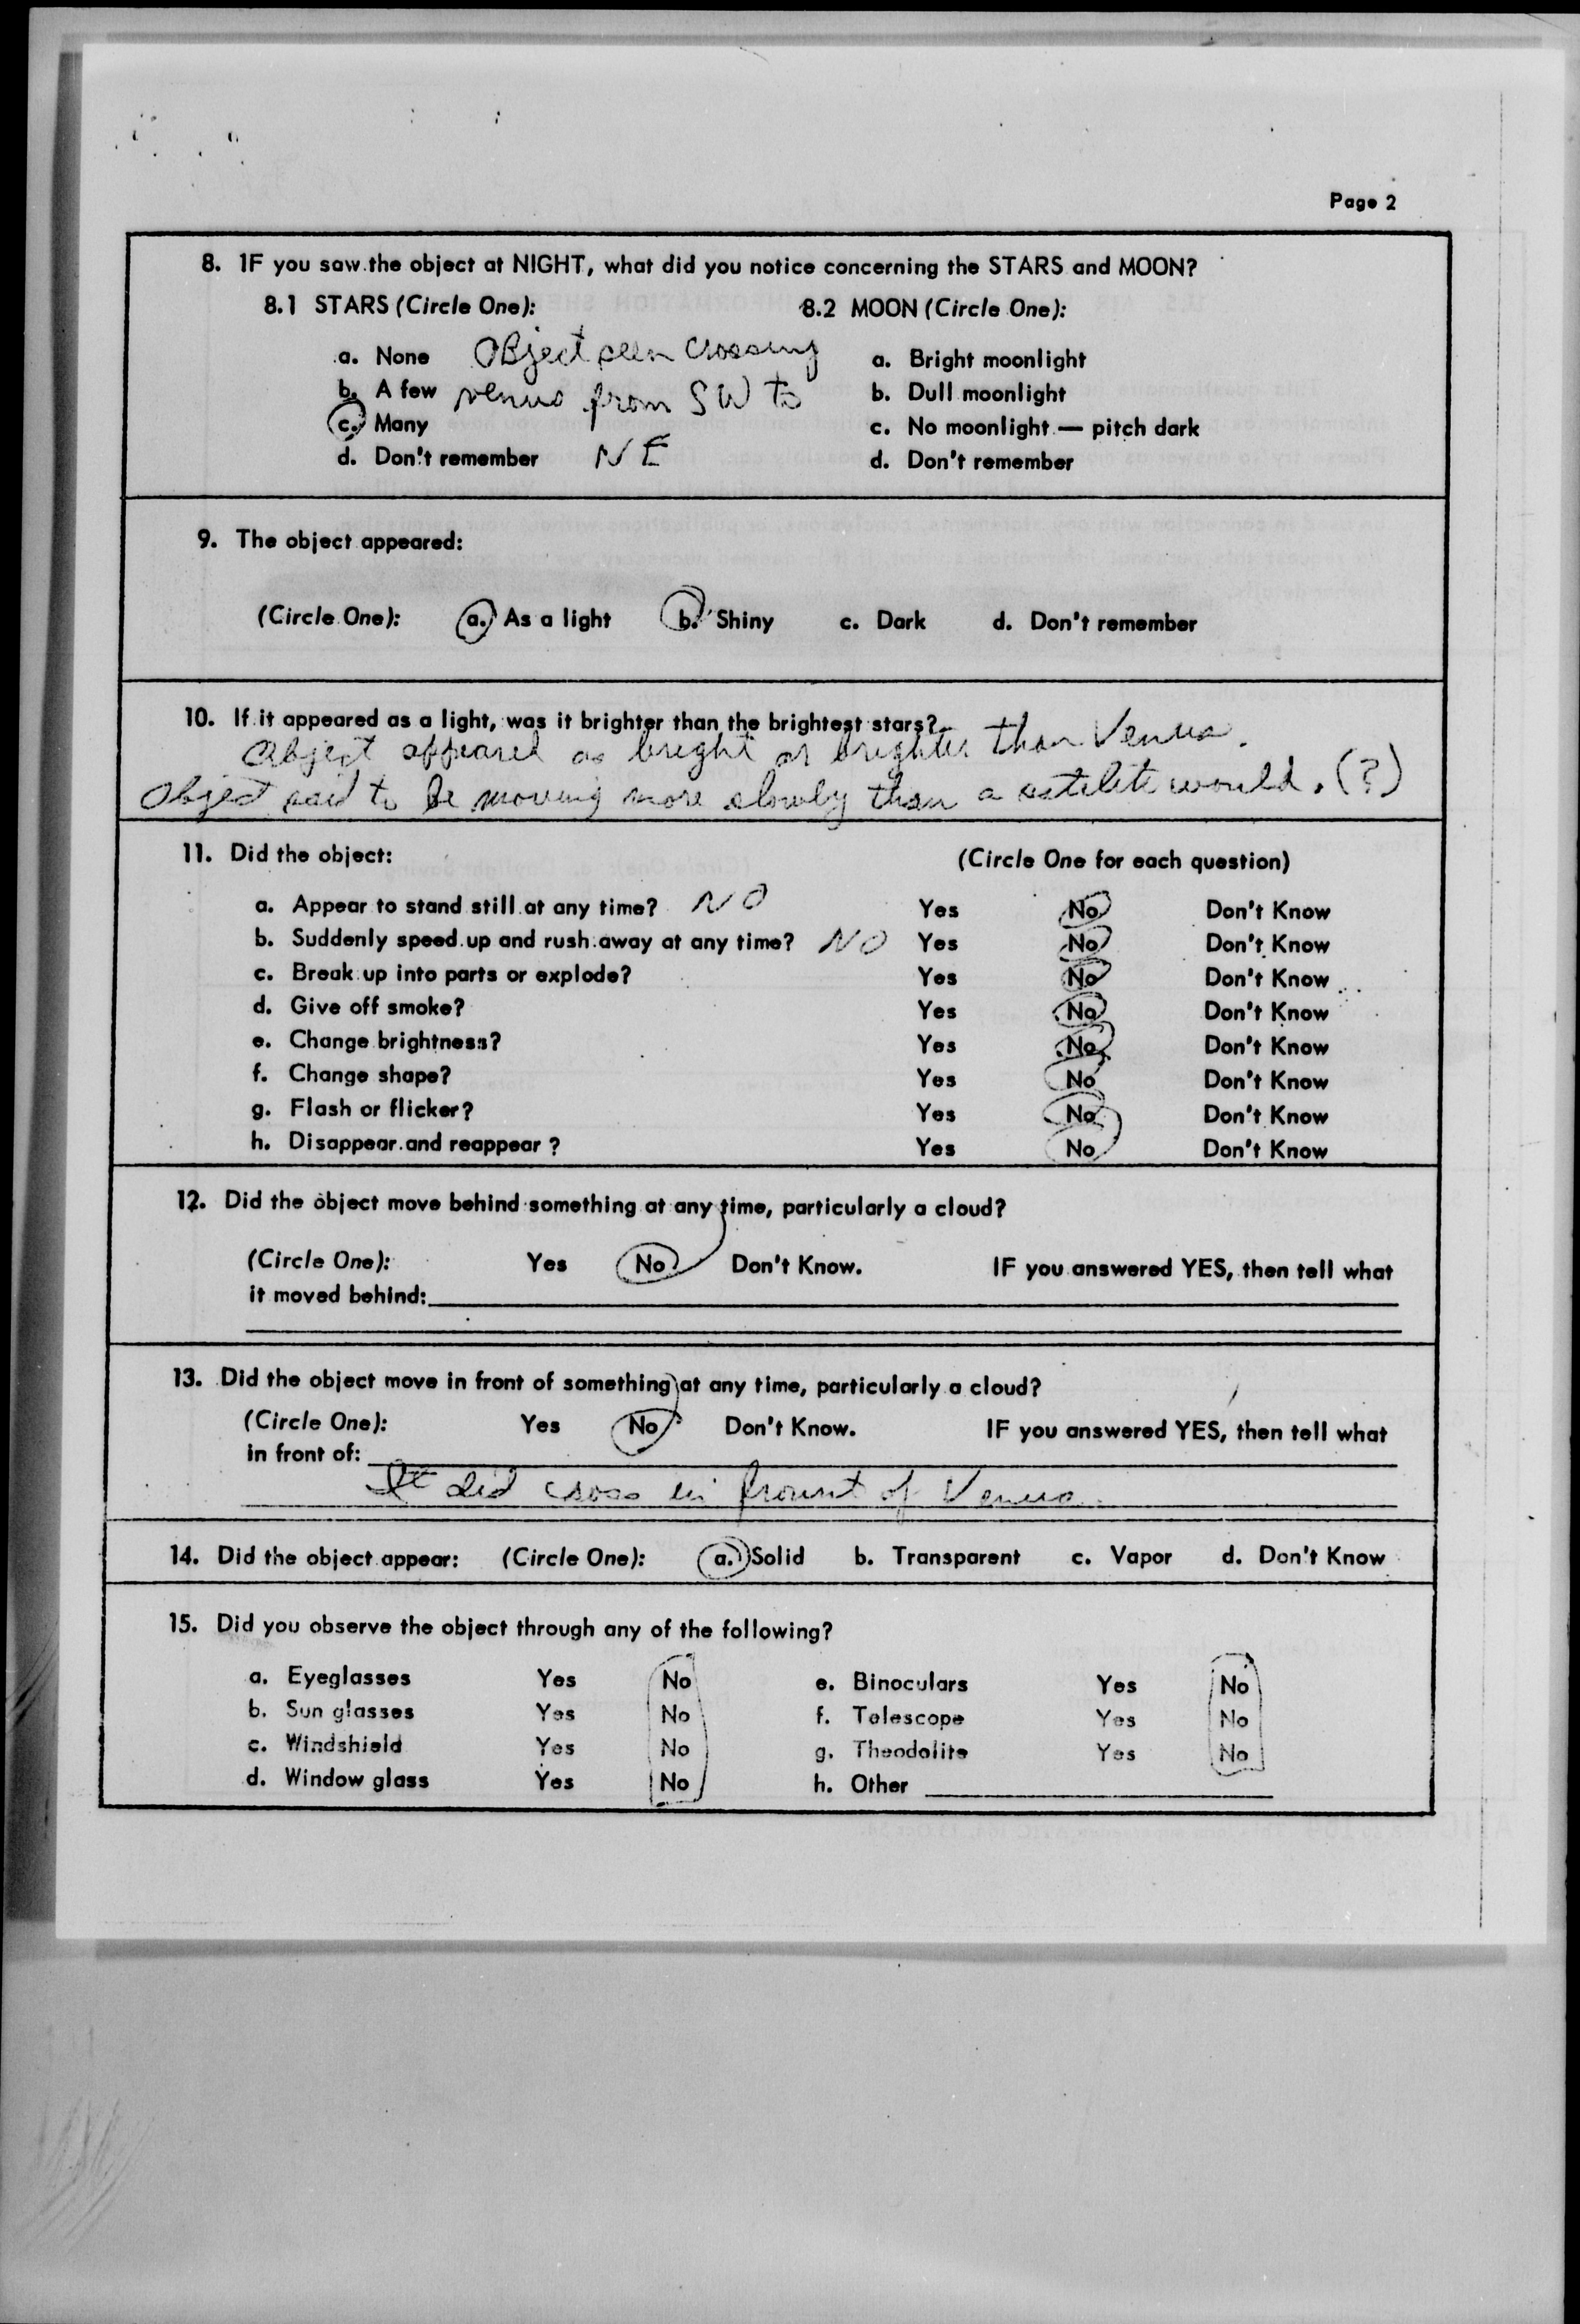 Page 2
8. IF you saw the object at NIGHT, what did you notice concerning the STARS and MOON?
8.1 STARS (Circle One): 8.2 MOON (Circle One):
a. None Object seen crossing a. Bright moonlight
b. A few venus from SW to b. Dull moonlight
c. Many c. No moonlight — pitch dark
d. Don't remember NE d. Don't remember
9. The object appeared:
(Circle One): a. As a light b. Shiny c. Dark d. Don't remember
10. If it appeared as a light, was it brighter than the brightest stars?
Object appeared as bright or brighter than Venus.
Object said to be moving more slowly than a satelite would. (?)
11. Did the object: (Circle One for each question)
a. Appear to stand still at any time? NO Yes No Don't Know
b. Suddenly speed up and rush away at any time? NO Yes No Don't Know
c. Break up into parts or explode? Yes No Don't Know
d. Give off smoke? Yes No Don't Know
e. Change brightness? Yes No Don't Know
f. Change shape? Yes No Don't Know
g. Flash or flicker? Yes No Don't Know
h. Disappear and reappear ? Yes No Don't Know
12. Did the object move behind something at any time, particularly a cloud?
(Circle One): Yes No Don't Know. IF you answered YES, then tell what
it moved behind:
13. Did the object move in front of something at any time, particularly a cloud?
(Circle One): Yes No Don't Know. IF you answered YES, then tell what
in front of:
It did cross in frount of Venus.
14. Did the object appear: (Circle One): a. Solid b. Transparent c. Vapor d. Don't Know
15. Did you observe the object through any of the following?
a. Eyeglasses Yes No e. Binoculars Yes No
b. Sun glasses Yes No f. Telescope Yes No
c. Windshield Yes No g. Theodolite Yes No
d. Window glass Yes No h. Other